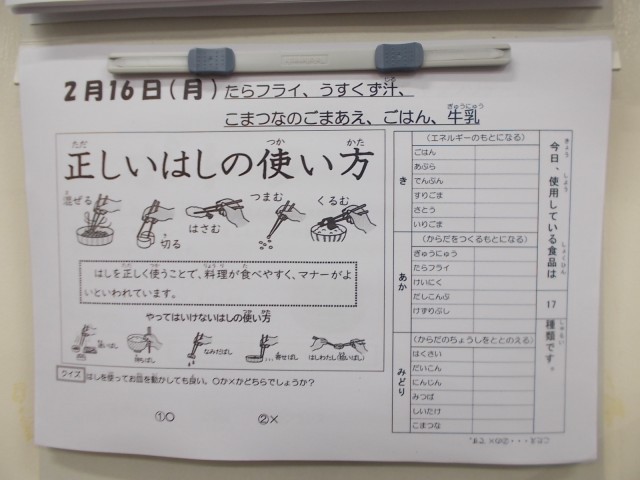 2月16日(月) たらフライ、うすくず汁、
こまつなのごまあえ、ごはん、牛乳
正しいはしの使い方
混ぜる
切る
はさむ
つまむ
くるむ
はしを正しく使うことで、料理が食べやすく、マナーがよ
いといわれています。
やってはいけないはしの使い方
なみだばし
寄せばし
はしわたし(拾いばし)
クイズ はしを使ってお皿を動かしても良い。○か×かどちらでしょうか?
①○ ②×
き
(エネルギーのもとになる)
ごはん
あぶら
でんぷん
すりごま
さとう
いりごま
あか
(からだをつくるもとになる)
ぎゅうにゅう
たらフライ
けいにく
だしこんぶ
けずりぶし
みどり
(からだのちょうしをととのえる)
はくさい
だいこん
にんじん
みつば
しいたけ
こまつな
今日、使用している食品は
17
種類です。
こたえ・・・②の×です。